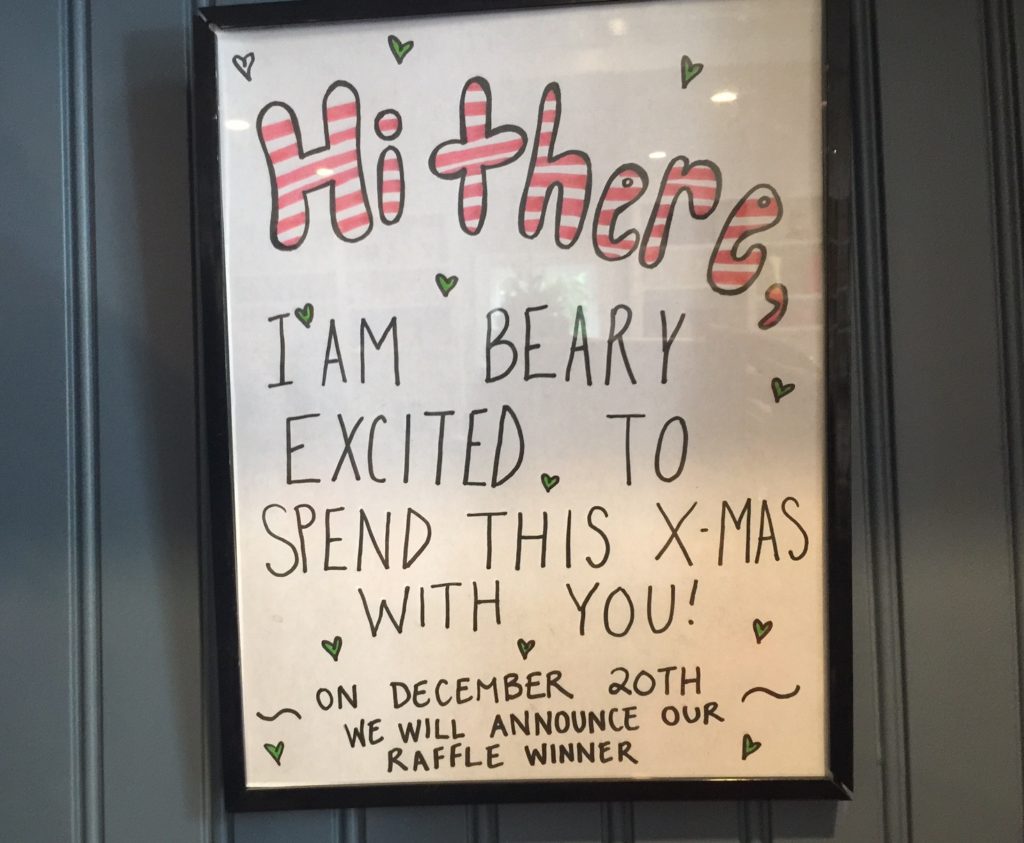 Hi there,
I'AM BEARY
EXCITED TO
SPEND THIS X-MAS
WITH YOU!
ON DECEMBER 20TH
WE WILL ANNOUNCE OUR
RAFFLE WINNER